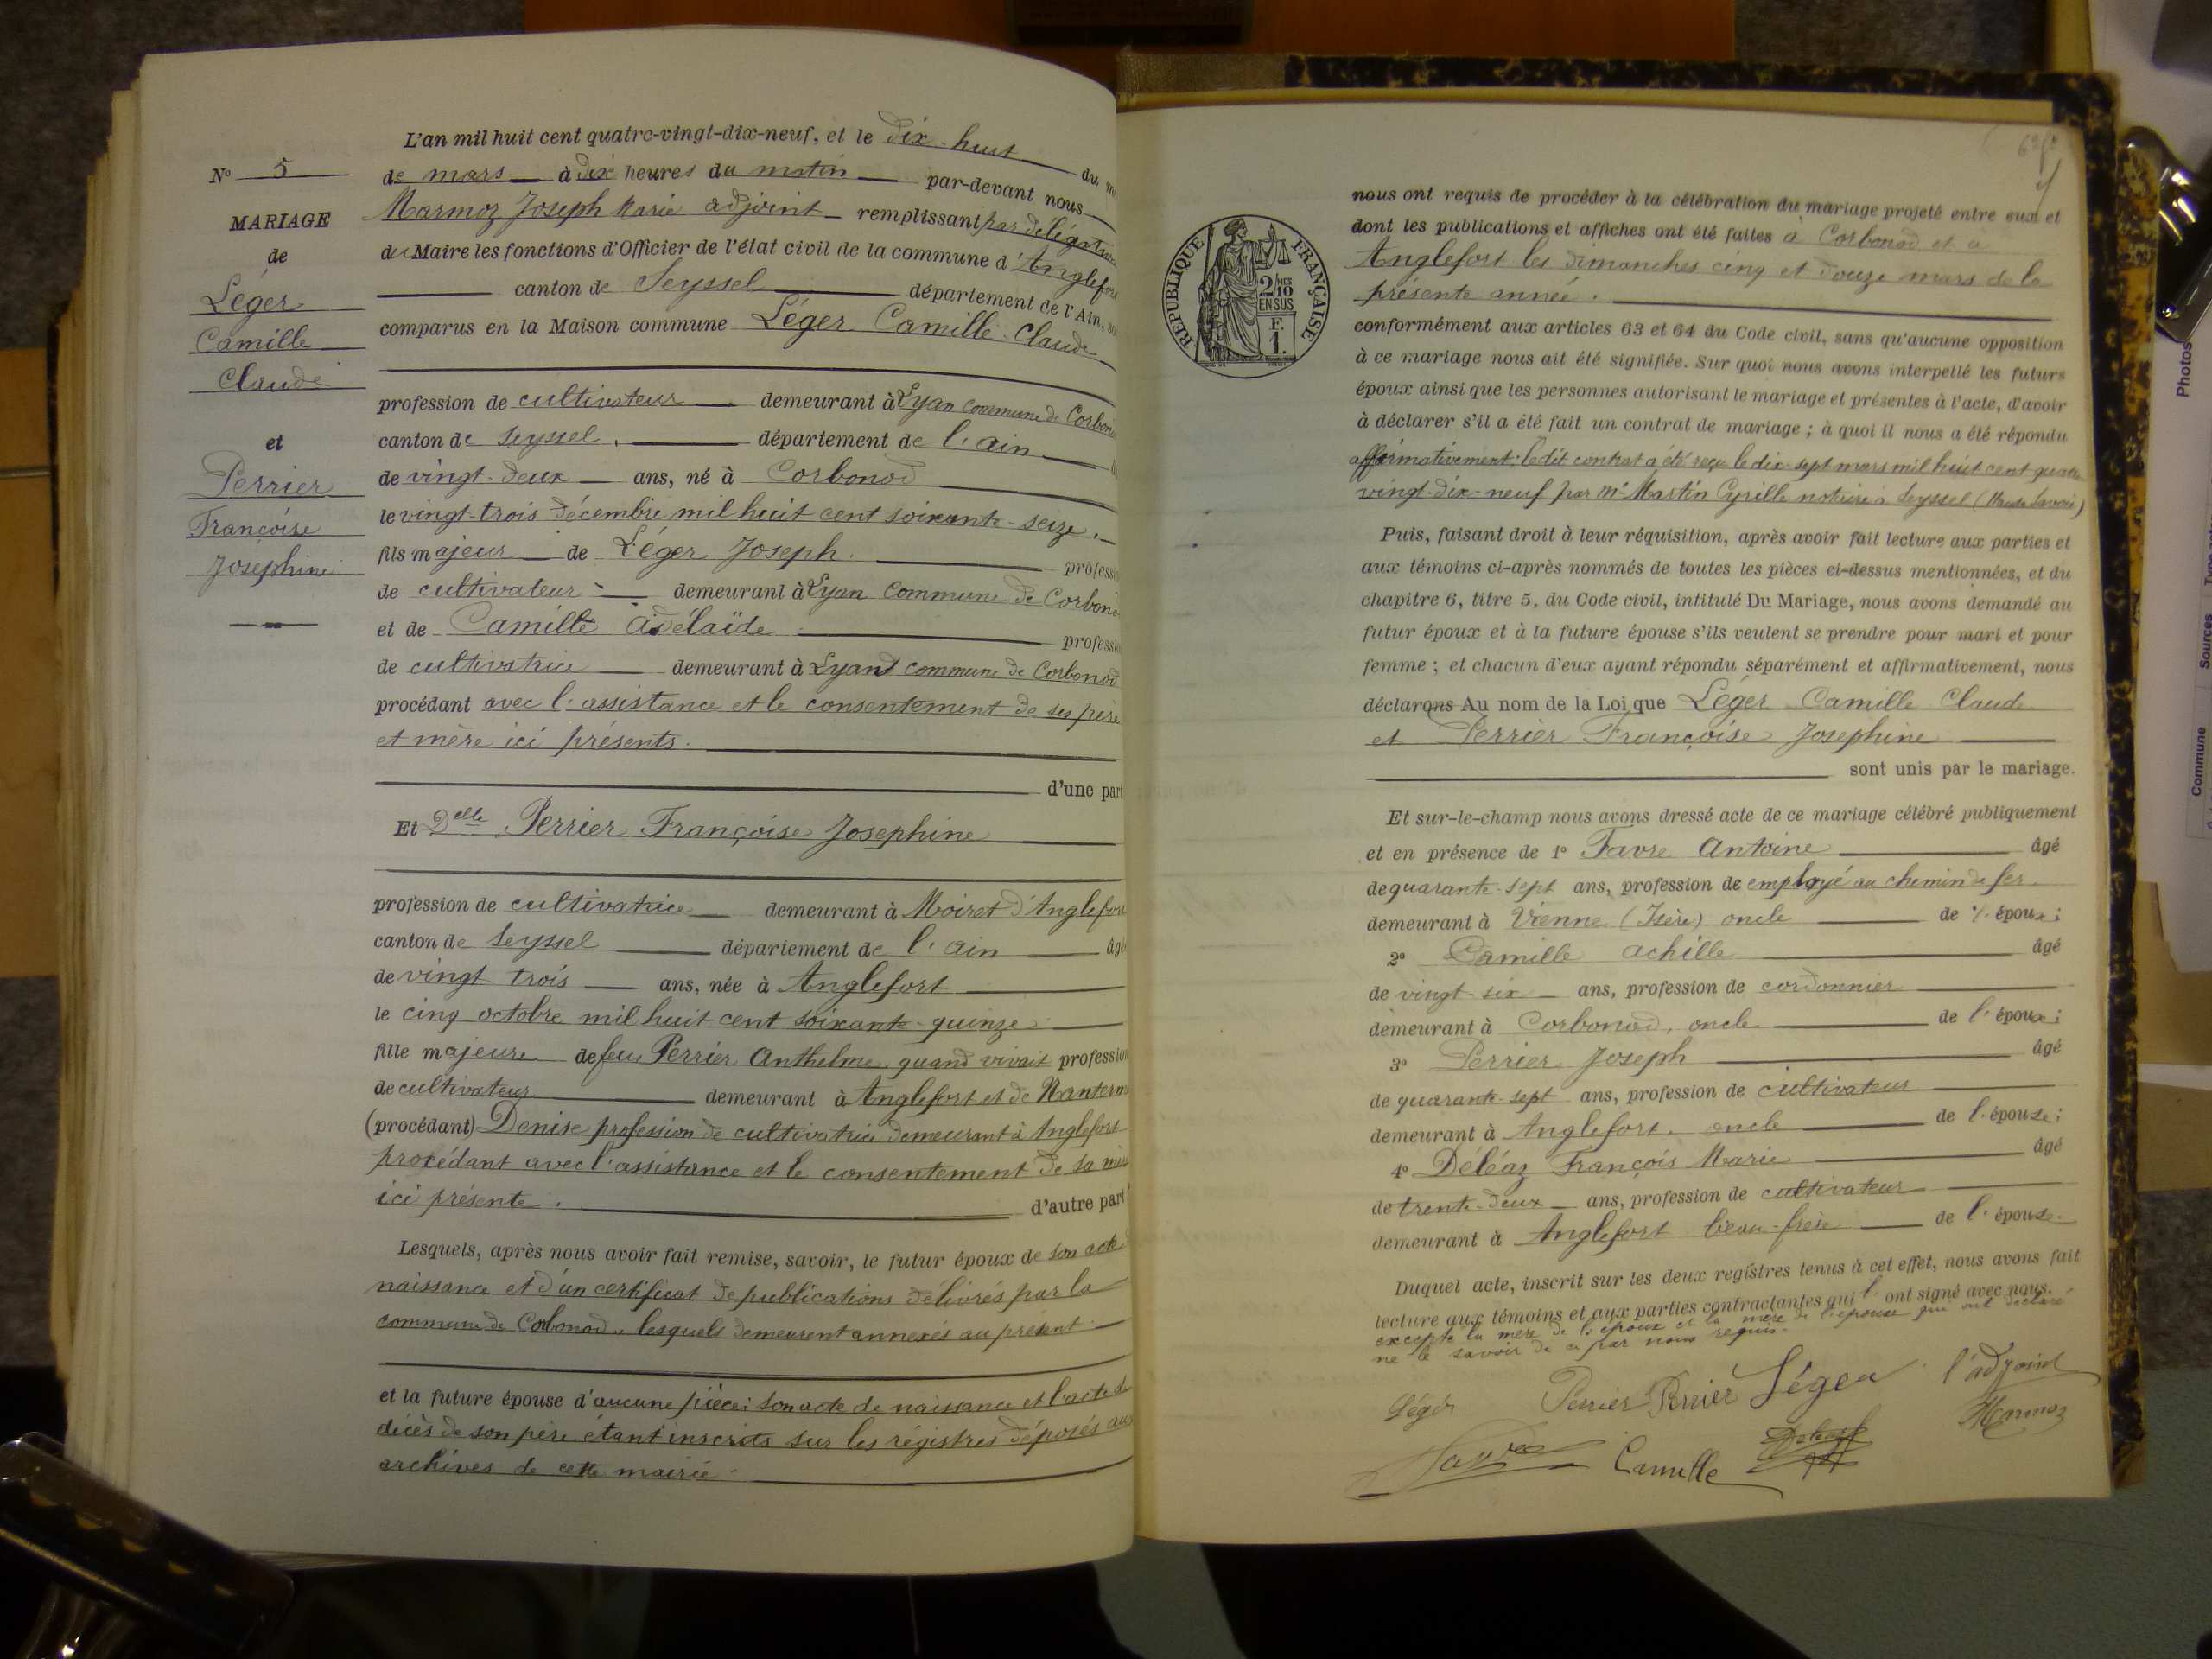 L'an mil huit cent quatre-vingt-dix-neuf, et le dix-huit du
N° 5
de mars à dix heures du matin par-devant nous
MARIAGE
Marmoz Joseph Marie adjoint remplissant par délégation
de
du Maire les fonctions d'Officier de l'état civil de la commune d'Anglefort
Léger
canton de Seyssel département de l'Ain,
Camille
comparus en la Maison commune Léger Camille Claude
Claude
profession de cultivateur demeurant à Lyan commune de Corbonod
et
canton de Seyssel, département de l'ain
Perrier
de vingt-deux ans, né à Corbonod
Françoise
le vingt-trois décembre mil huit cent soixante-seize,
Joséphine
fils majeur de Léger Joseph. profession
de cultivateur demeurant à Lyan commune de Corbonod
et de Camille Adélaïde profession
de cultivatrice demeurant à Lyand commune de Corbonod
procédant avec l'assistance et le consentement de ses père
et mère ici présents.
d'une part
Et Delle Perrier Françoise Josephine
profession de cultivatrice demeurant à Moiret d'Anglefort
canton de Seyssel département de l'ain âgé
de vingt trois ans, née à Anglefort
le cinq octobre mil huit cent soixante-quinze
fille majeure de feu Perrier Anthelme quand vivait profession
de cultivateur demeurant à Anglefort et de
(procédant) Denise profession de cultivatrice demeurant à Anglefort
procédant avec l'assistance et le consentement de sa mère
ici présente. d'autre part
Lesquels, après nous avoir fait remise, savoir, le futur époux de son acte
naissance et d'un certificat de publications délivrés par la
commune de Corbonod, lesquels demeurent annexés au présent
et la future épouse d'aucune pièce; son acte de naissance et l'acte de
décès de son père étant inscrits sur les régistres déposés aux
archives de cette mairie.
RÉPUBLIQUE FRANÇAISE
2/10
EN SUS
F.
1.
nous ont requis de procéder à la célébration du mariage projeté entre eux et
dont les publications et affiches ont été faites à Corbonod et à
Anglefort les dimanches cinq et douze mars de la
présente année.
conformément aux articles 63 et 64 du Code civil, sans qu'aucune opposition
à ce mariage nous ait été signifiée. Sur quoi nous avons interpellé les futurs
époux ainsi que les personnes autorisant le mariage et présentes à l'acte, d'avoir
à déclarer s'il a été fait un contrat de mariage ; à quoi il nous a été répondu
affirmativement; le dit contrat a été reçu le dix-sept mars mil huit cent quatre
vingt-dix-neuf par Me Martin Cyrille notaire à Seyssel (Haute Savoie)
Puis, faisant droit à leur réquisition, après avoir fait lecture aux parties et
aux témoins ci-après nommés de toutes les pièces ci-dessus mentionnées, et du
chapitre 6, titre 5, du Code civil, intitulé Du Mariage, nous avons demandé au
futur époux et à la future épouse s'ils veulent se prendre pour mari et pour
femme ; et chacun d'eux ayant répondu séparément et affirmativement, nous
déclarons Au nom de la Loi que Léger Camille Claude
et Perrier Françoise Josephine
sont unis par le mariage.
Et sur-le-champ nous avons dressé acte de ce mariage célébré publiquement
et en présence de 1° Favre Antoine âgé
de quarante-sept ans, profession de employé au chemin de fer
demeurant à Vienne (Isère) oncle de l'époux;
2° Camille Achille âgé
de vingt-six ans, profession de cordonnier
demeurant à Corbonod, oncle de l'époux;
3° Perrier Joseph âgé
de quarante-sept ans, profession de cultivateur
demeurant à Anglefort. oncle de l'épouse;
4° Déléaz François Marie âgé
de trente-deux ans, profession de cultivateur
demeurant à Anglefort beau-frère de l'épouse.
Duquel acte, inscrit sur les deux registres tenus à cet effet, nous avons fait
lecture aux témoins et aux parties contractantes qui l'ont signé avec nous.
excepté la mère de l'époux et la mère de l'épouse qui ont déclaré
ne le savoir de ce par nous requis.
Léger Perrier Perrier Léger l'adjoint
Marmoz
Favre Camille Deleaz
Photos
Sources
Commune